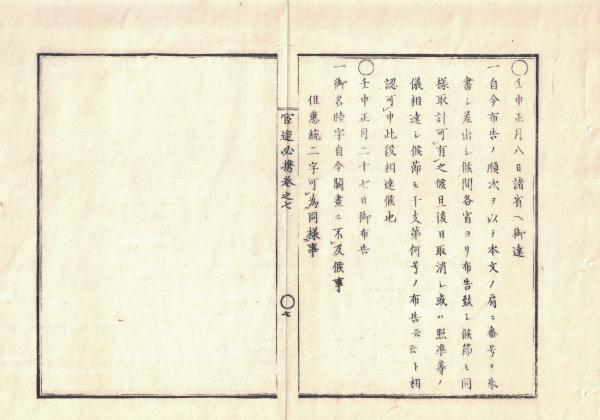 ◯壬申正月八日諸省ヘ御達
一自今布告ノ順次ヲ以テ本文ノ肩ニ番号ヲ朱
書シ差出シ候間各省ヨリ布告致シ候節モ同
様取計可有之候且後日取消シ或ハ照準等ノ
儀相達シ候節モ干支第何号ノ布告云云ト相
認可申此段相達候也
◯壬申正月二十七日御布告
一御名睦字自今闕畫ニ不及候事
但惠統二字可為同様事
官途必携巻之七
◯七